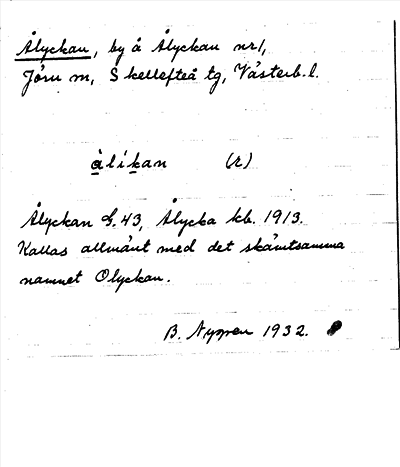 Ålyckan, by å Ålyckan nr 1,
Jörn sn, Skellefteå tg, Västerb. l.
àlíkan (r)
Ålyckan G. 43, Ålycka kb. 1913.
Kallas allmänt med det skämtsamma
namnet Olyckan.
B. Nyssen 1932.